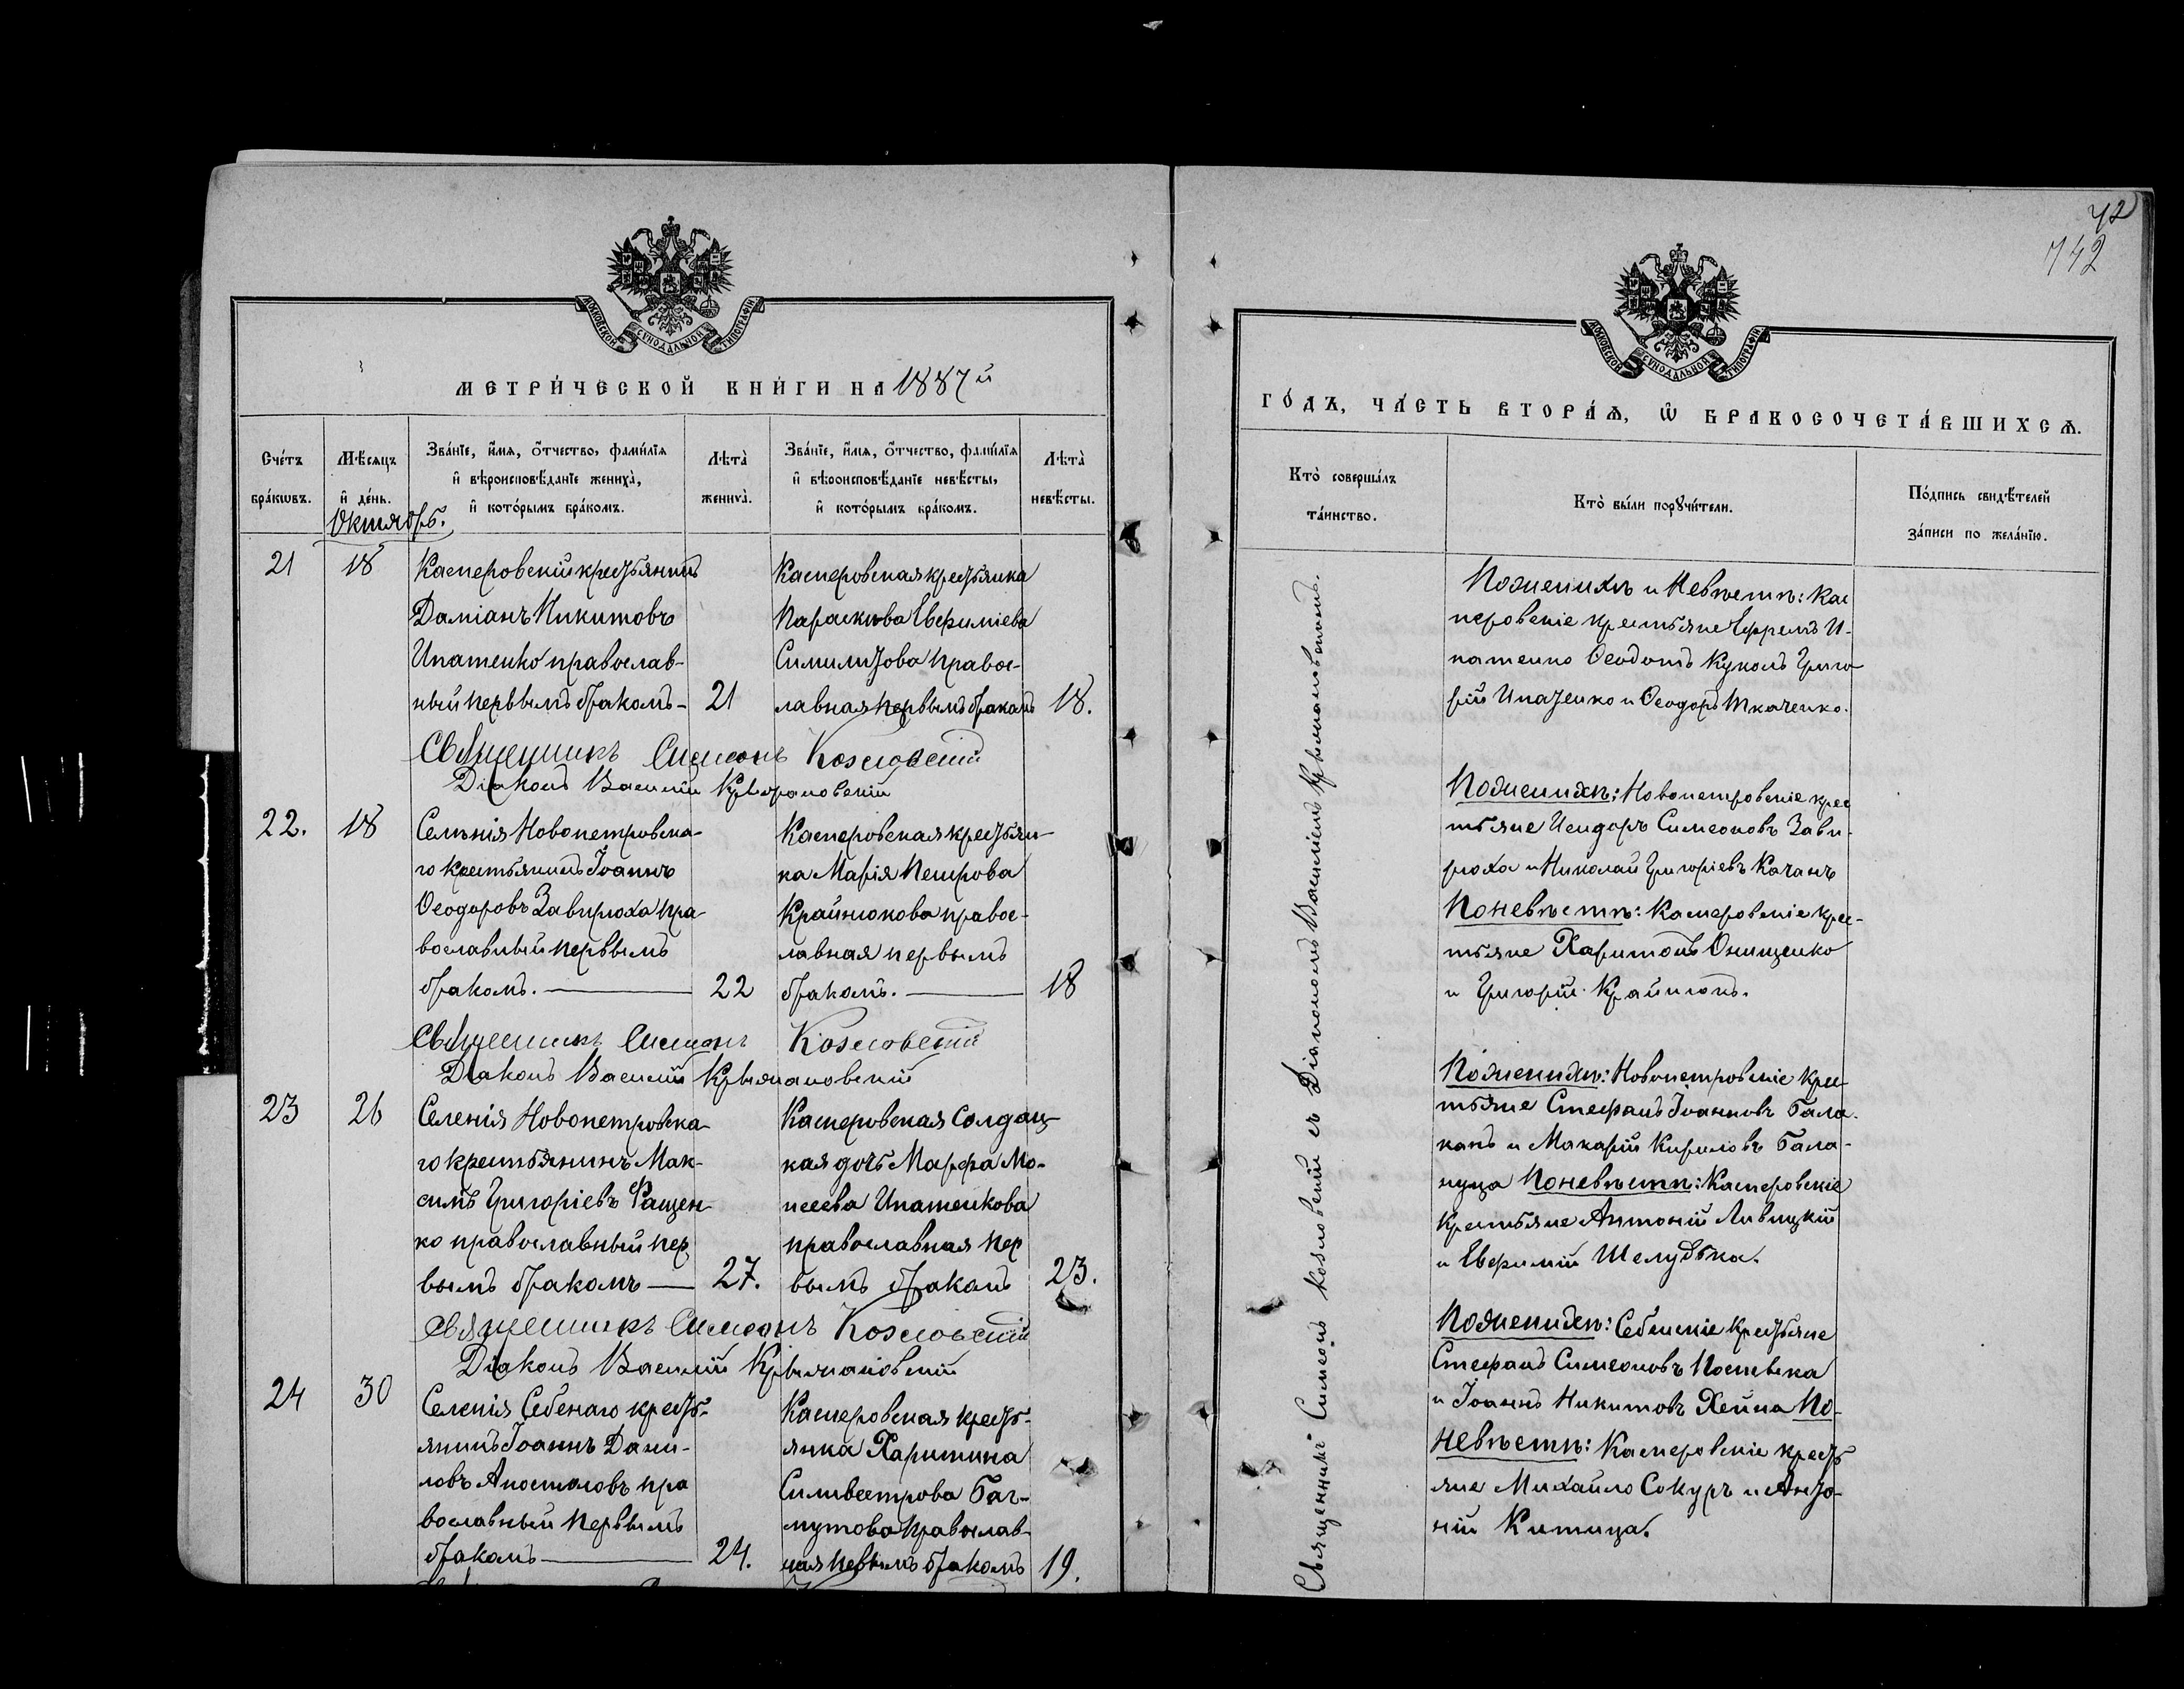 42
742
МОСКОВСКОЙ СѴНОДАЛЬНОЙ ТИПОГРАФІИ
МЕТРИ́ЧЕСКОЙ КНИ́ГИ НА 1887й
Сче́тъ бра́кωвъ.
Мѣ́сяцъ и҆ де́нь.
Зва́нїе, и҆́мѧ, ѻ҆́тчество, фами́лїѧ
и҆ вѣроисповѣ́данїе жениха̀,
и҆ кото́рымъ бра́комъ.
Лѣта̀ жениха̀.
Зва́нїе, и҆́мѧ, ѻ҆́тчество, фами́лїѧ
и҆ вѣроисповѣ́данїе невѣ́сты,
и҆ кото́рымъ бра́комъ.
Лѣта̀ невѣ́сты.
Октябрь.
21
18
Касперовскій крестьянинъ
Даміанъ Никитовъ
Ипатенко православ-
ный первымъ бракомъ-
21
Касперовская крестьянка
Параскева Евфиміева
православная первымъ бракомъ
18.
Священникъ Симеонъ Козловскій
Діаконъ Василій Крыжановскій
22.
18
Селенія Новопетровска-
го крестьянинъ Іоаннъ
Ѳеодоровъ Завирюха пра-
вославный первымъ
бракомъ.
22
Касперовская крестьян-
ка Марія Петрова
Крайнюкова правос-
лавная первымъ
бракомъ.
18
Священникъ Симеонъ Козловскій
Діаконъ Василій Крыжановскій
23
26
Селенія Новопетровска-
го крестьянинъ Мак-
симъ Григоріевъ Фащен-
ко православный пер
вымъ бракомъ
27.
Касперовская солдатс-
кая дочь Марфа Мо-
исеева Ипатенкова
православная пер
вымъ бракомъ
23.
Священникъ Симеонъ Козловскій
Діаконъ Василій Крыжановскій
24
30
Селенія Себенаго кресть-
янинъ Іоаннъ Дани-
ловъ Апостоловъ пра
вославный первымъ
бракомъ
24.
Касперовская кресть-
янка Харитина
Сильвестрова Бах-
мутова православ-
ная первымъ бракомъ
19.
МОСКОВСКОЙ СѴНОДАЛЬНОЙ ТИПОГРАФІИ
ГО́ДЪ, ЧА́СТЬ ВТОРА́Ѧ, Ѡ҆ БРАКОСОЧЕТА́ВШИХСѦ.
Кто̀ соверша́лъ
та́инство.
Кто̀ бы́ли порꙋчи́тели.
По́дпись свидѣ́телей
за́писи по жела́нїю.
Священникъ Симеонъ Козловскій съ Діакономъ Василіемъ Крыжановскимъ.
По женихѣ и невѣстѣ: Кас
перовскіе крестьяне Ефремъ И-
патенко Ѳеодотъ Куколъ Григо
рій Ипатенко и Ѳеодоръ Ткаченко.
По женихѣ: Новопетровскіе крес
тьяне Исидоръ Симеоновъ Зави-
рюха и Николай Григоріевъ Качанъ
По невѣстѣ: Касперовскіе крес-
тьяне Харитонъ Онищенко
и Григорій Крайнюкъ.
По женихѣ: Новопетровскіе крес-
тьяне Стефанъ Іоанновъ Бала-
канъ и Макарій Кириловъ Бала-
нуца По невѣстѣ: Касперовскіе
крестьяне Антоній Ливицкій
и Евфимій Шелудька.
По женихѣ: Себенскіе крестьяне
Стефанъ Симеоновъ
и Іоаннъ Никитовъ По-
невѣстѣ: Касперовскіе кресть
яне Михайло Сокуръ и Анто-
ній Китица.